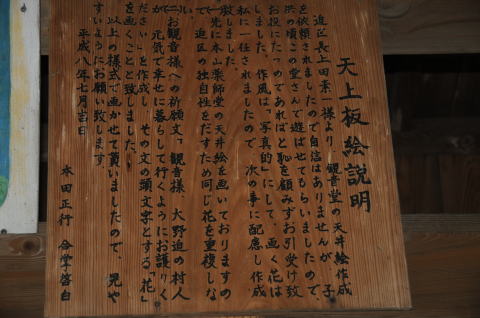 天上板絵説明
迫区長上田素一様より、観音堂の天井絵作成
を依頼されましたので自信はありませんが、子
供の頃この堂さんで遊ばせてもらいましたので、
お役にたつのであればと恥を顧みずお引受け致
しました。作風は「写真的」にして、画く花は
私に一任されましたので、次の事に配慮し作成
致しました。
一、先に本山薬師堂の天井絵を画いておりますの
で、迫区の独自性をだすため同じ花を重複しな
い。
二、お観音様への祈願文、「観音様、大野迫の村人
が元気で幸せに暮らして行くようにお護りく
ださい」を作成し、その文の頭文字とする「花」
を画くことと致しました。
以上の様式で画かせて貰いましたので、
すようにお願い致します
平成八年七月吉日
本田正行 合掌啓白